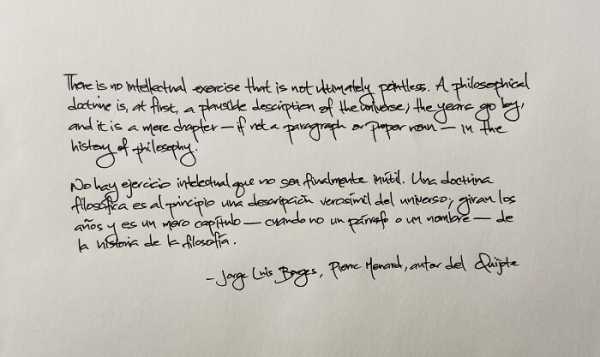 There is no intellectual exercise that is not ultimately pointless. A philosophical
doctrine is, at first, a plausible description of the universe; the years go by,
and it is a mere chapter — if not a paragraph or proper noun — in the
history of philosophy.
No hay ejercicio intelectual que no sea finalmente inútil. Una doctrina
filosófica es al principio una descripción verosímil del universo; giran los
años y es un mero capítulo — cuando no un párrafo o un nombre — de
la historia de la filosofía.
– Jorge Luis Borges, Pierre Menard, autor del Quijote